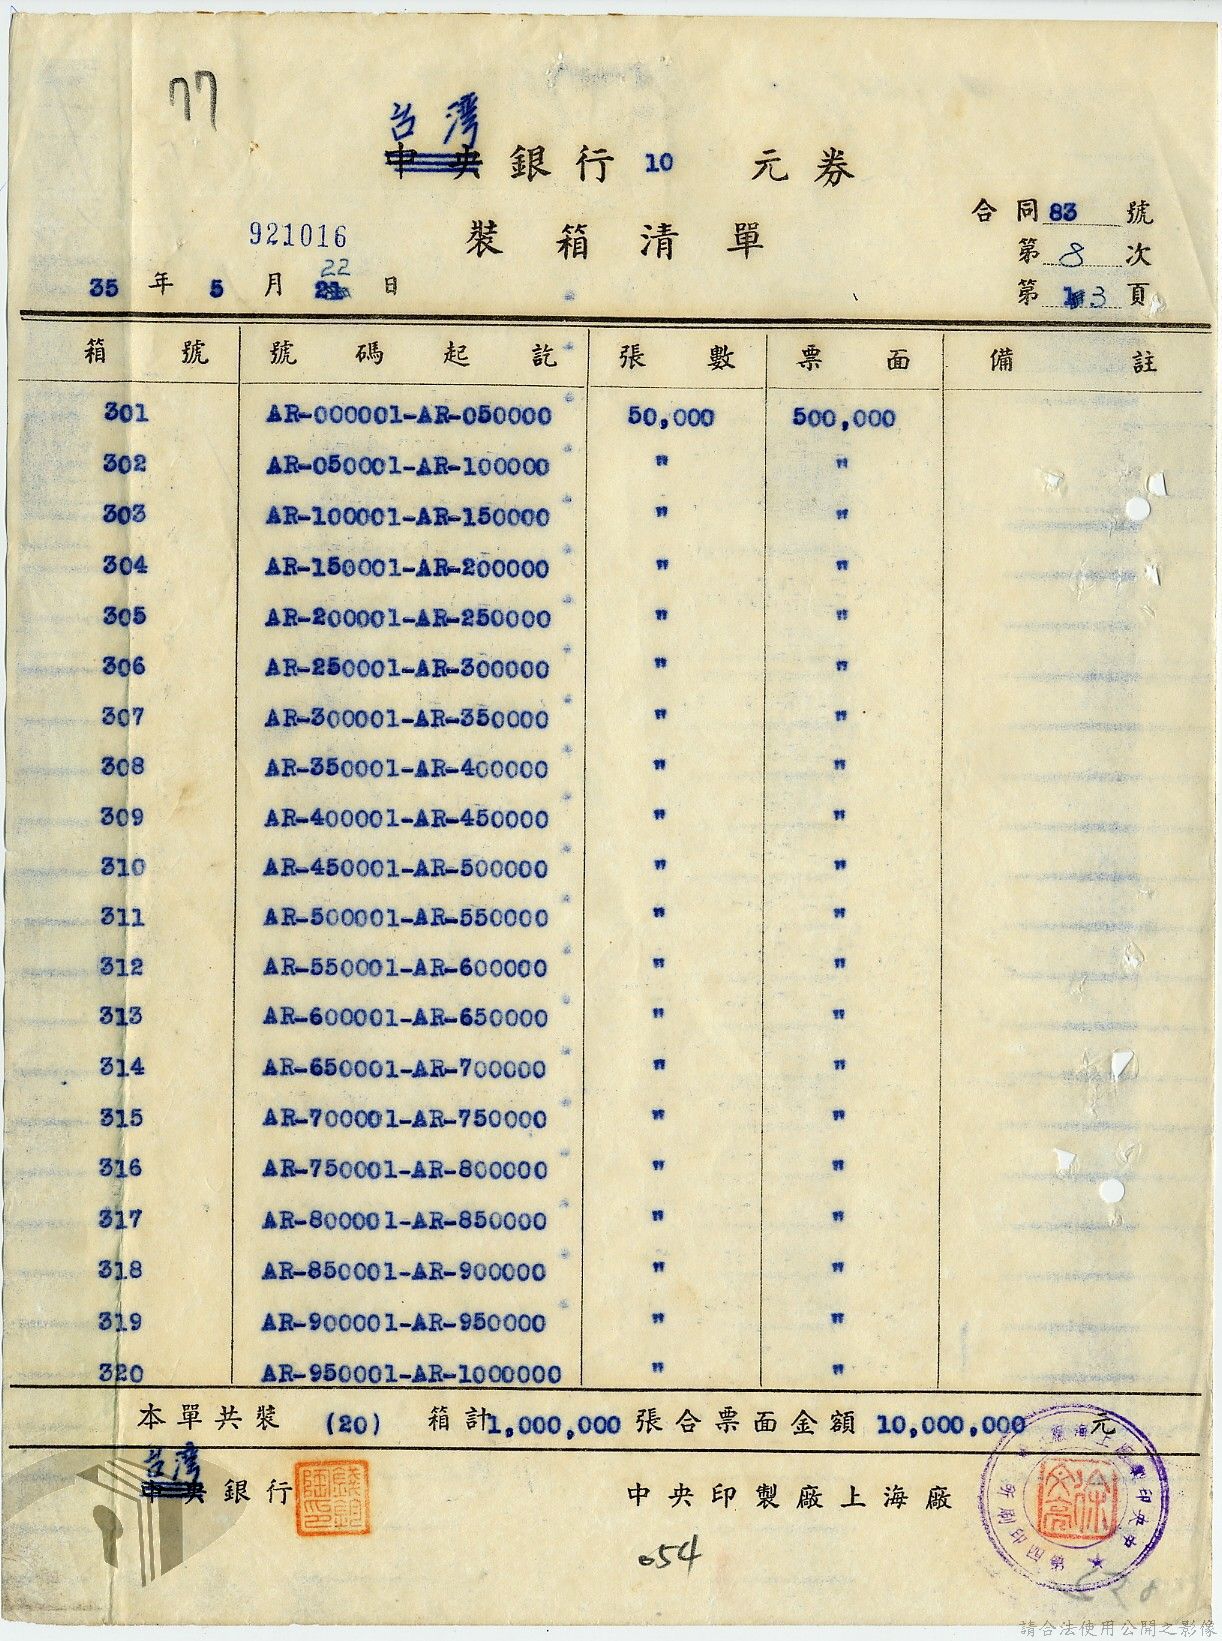 77
台灣
中央銀行 10 元券
合同 83 號
921016 裝箱清單
第 8 次
35 年 5 月 21 22 日
第 3 頁
箱號 號碼起訖 張數 票面 備註
301 AR-000001-AR-050000 50,000 500,000
302 AR-050001-AR-100000 " "
303 AR-100001-AR-150000 " "
304 AR-150001-AR-200000 " "
305 AR-200001-AR-250000 " "
306 AR-250001-AR-300000 " "
307 AR-300001-AR-350000 " "
308 AR-350001-AR-400000 " "
309 AR-400001-AR-450000 " "
310 AR-450001-AR-500000 " "
311 AR-500001-AR-550000 " "
312 AR-550001-AR-600000 " "
313 AR-600001-AR-650000 " "
314 AR-650001-AR-700000 " "
315 AR-700001-AR-750000 " "
316 AR-750001-AR-800000 " "
317 AR-800001-AR-850000 " "
318 AR-850001-AR-900000 " "
319 AR-900001-AR-950000 " "
320 AR-950001-AR-1000000 " "
本單共裝 (20) 箱計 1,000,000 張合票面金額 10,000,000 元
台灣
中央銀行 中央印製廠上海廠
054
請合法使用公開之影像